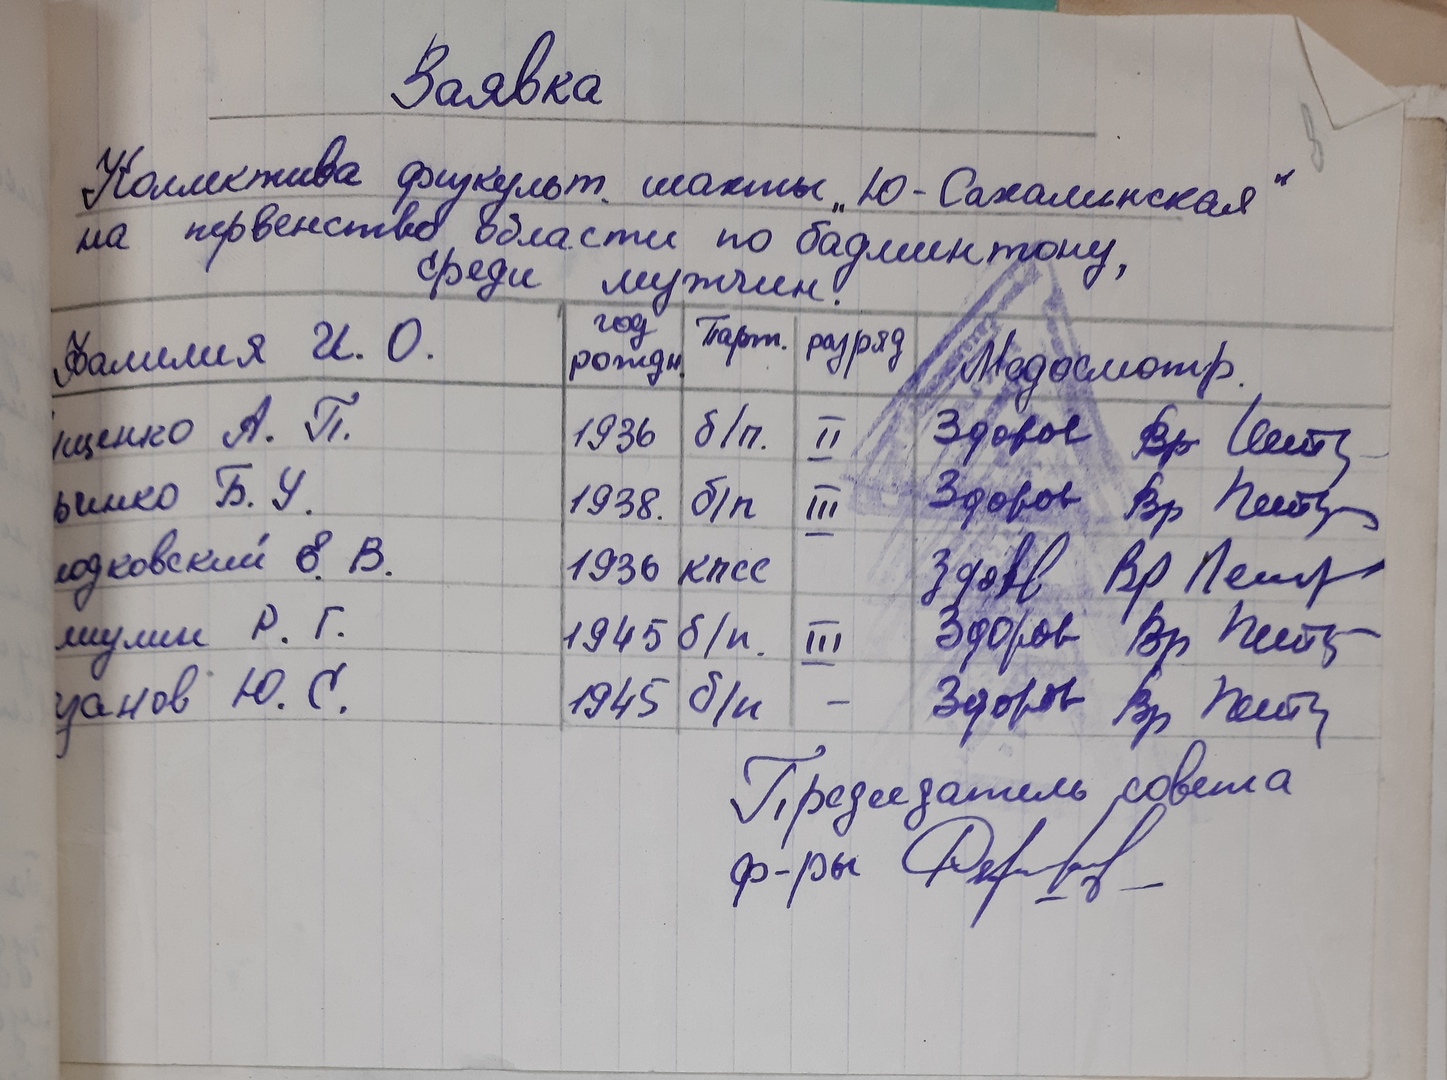 Заявка
Коллектива физкульт. шахты „Ю-Сахалинская"
на первенство области по бадминтону,
среди мужчин.
Фамилия И. О. год рожд. Парт. разряд Медосмотр.
щенко А. П. 1936 б/п. II Здоров Вр
ьинко Б. У. 1938. б/п III Здоров Вр
лодковский Е. В. 1936 кпсс Здоров Вр
миулин Р. Г. 1945 б/п. III Здоров Вр
занов Ю. С. 1945 б/п – Здоров Вр
Председатель совета
ф-ры